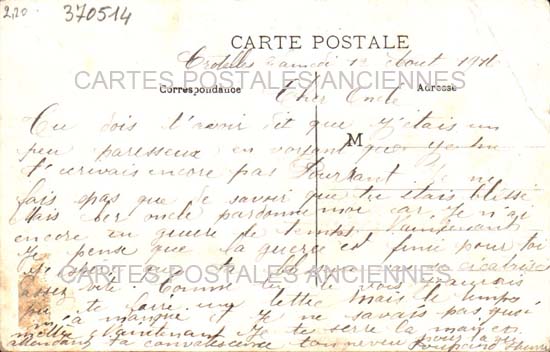 2,20 370514
CARTE POSTALE
samedi 12 Aout
CARTES POSTALES ANCIENNES
Correspondance Adresse
Cher Oncle
Tu dois t'avoir dit que j'etais un
peu paresseux en voyant que je ne
M
t'ecrivais encore pas Pourtant je ne
fais pas que de savoir que tu etais blessé
mais cher oncle pardonne moi car je n'ai
encore eu guere de temps maintenant
je pense que la guerre est finie pour toi
CARTES POSTALES ANCIENNES
cicatrise
assez vite comme tu le vois j'aurais
pu te faire une lettre mais le temps
m'a manqué et je ne savais pas quoi
mettre maintenant je te serre la main en
attendant ta convalescence ton neveu